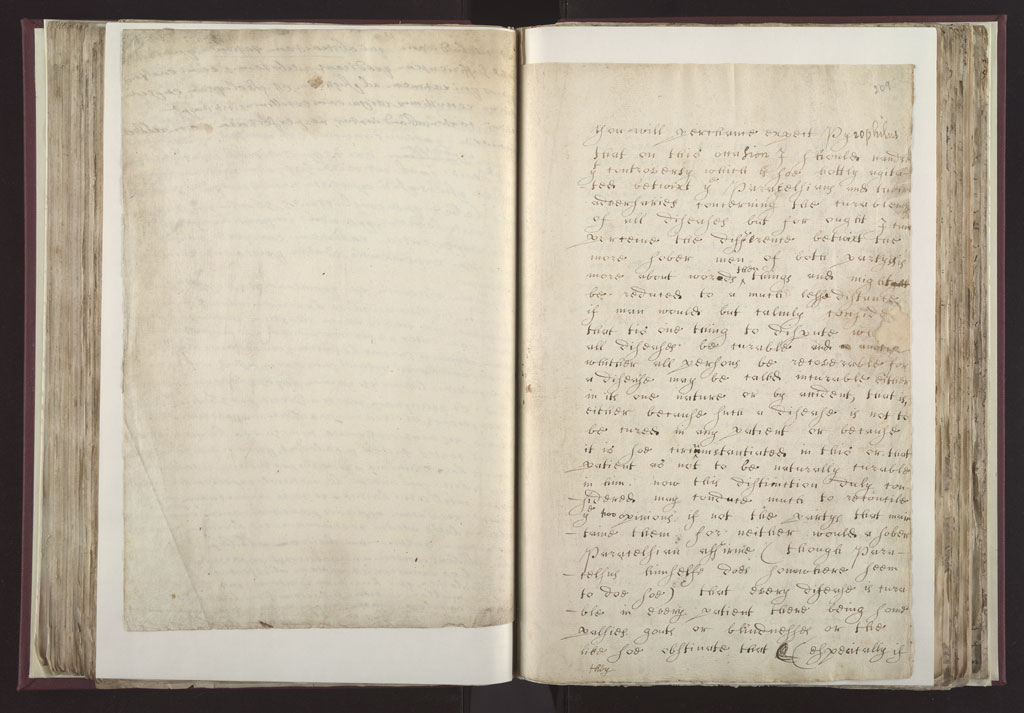 209
thou will perchance expect Pyrophilus
that on this occasion I should handle
ye controversy which is soe hotly agita
ted betwixt ye Paracelsians and their
adversaries concerning the curablenes
of all diseases but for ought I can
perceive the difference betwixt the
more sober men of both partys is
more about words then things and might
be reduced to a much lesse distance
if man would but calmly consider
that tis one thing to dispute
all diseases be curable and another
whither all persons be recoverable for
a disease may be called incurable either
in its one nature or by accident, that is,
either because such a disease is not to
be cured in any patient or because
it is soe circumstantiated in this or that
patient as not to be naturally curable
in him. now this distinction duly con
-sidered may conduce much to reconcile
ye two opinions if not the partys that main
-taine them, for neither would a sober
Paracelsian affirme (though Para-
-celsus himselfe does somwhere seem
to doe soe) that every disease is cura
-ble in every patient there being some
palsies gouts or blindnesses or the
like soe obstinate that (especially if
they